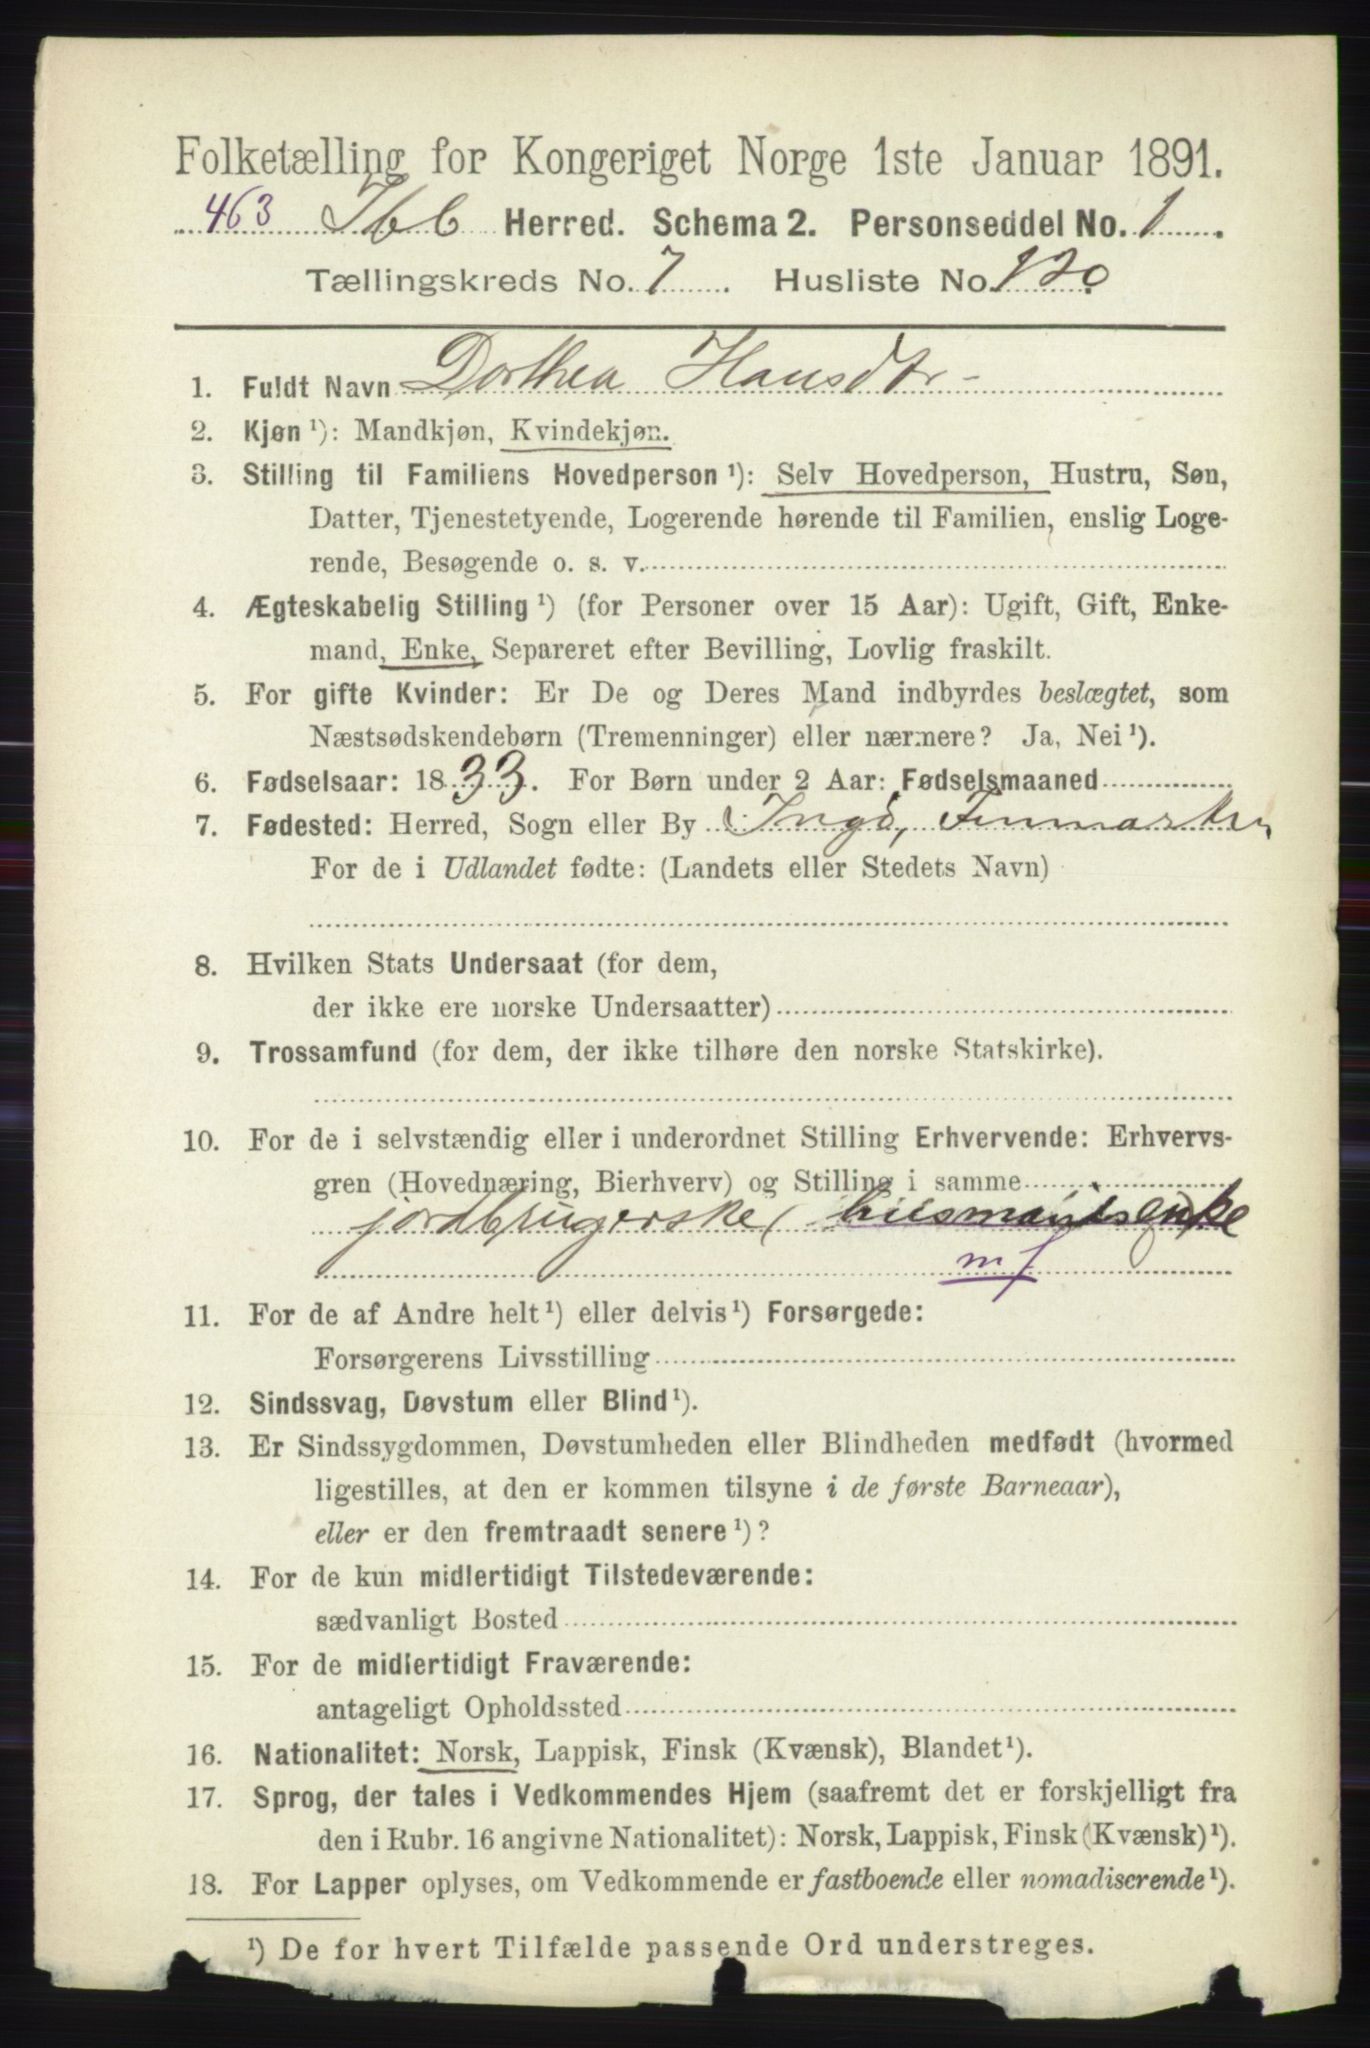 Folketælling for Kongeriget Norge 1ste Januar 1891.
463 Ibb Herred. Schema 2. Personseddel No. 1.
Tællingskreds No. 7. Husliste No. 120
1. Fuldt Navn Dorthea Hansdtr
2. Kjøn ¹): Mandkjøn, Kvindekjøn.
3. Stilling til Familiens Hovedperson ¹): Selv Hovedperson, Hustru, Søn,
Datter, Tjenestetyende, Logerende hørende til Familien, enslig Loge-
rende, Besøgende o. s. v.
4. Ægteskabelig Stilling ¹) (for Personer over 15 Aar): Ugift, Gift, Enke-
mand, Enke, Separeret efter Bevilling, Lovlig fraskilt.
5. For gifte Kvinder: Er De og Deres Mand indbyrdes beslægtet, som
Næstsødskendebørn (Tremenninger) eller nærmere? Ja, Nei ¹).
6. Fødselsaar: 1833. For Børn under 2 Aar: Fødselsmaaned
7. Fødested: Herred, Sogn eller By Ingø, Finmarken
For de i Udlandet fødte: (Landets eller Stedets Navn)
8. Hvilken Stats Undersaat (for dem,
der ikke ere norske Undersaatter)
9. Trossamfund (for dem, der ikke tilhøre den norske Statskirke).
10. For de i selvstændig eller i underordnet Stilling Erhvervende: Erhvervs-
gren (Hovednæring, Bierhverv) og Stilling i samme
jordbrugerske, husmandsenke
m f
11. For de af Andre helt ¹) eller delvis ¹) Forsørgede:
Forsørgerens Livsstilling
12. Sindssvag, Døvstum eller Blind ¹).
13. Er Sindssygdommen, Døvstumheden eller Blindheden medfødt (hvormed
ligestilles, at den er kommen tilsyne i de første Barneaar),
eller er den fremtraadt senere ¹)?
14. For de kun midlertidigt Tilstedeværende:
sædvanligt Bosted
15. For de midlertidigt Fraværende:
antageligt Opholdssted
16. Nationalitet: Norsk, Lappisk, Finsk (Kvænsk), Blandet ¹).
17. Sprog, der tales i Vedkommendes Hjem (saafremt det er forskjelligt fra
den i Rubr. 16 angivne Nationalitet): Norsk, Lappisk, Finsk (Kvænsk) ¹).
18. For Lapper oplyses, om Vedkommende er fastboende eller nomadiserende ¹).
¹) De for hvert Tilfælde passende Ord understreges.